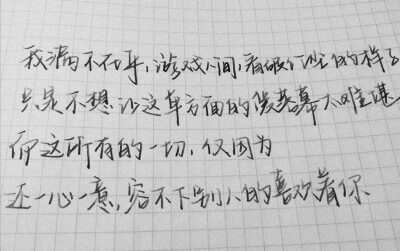 我满不在乎,游戏人间,看破红尘的样子
只是不想让这单方面的侯落幕太难堪
而这所有的一切,仅因为
还一心一意,容不下别人的喜欢着你